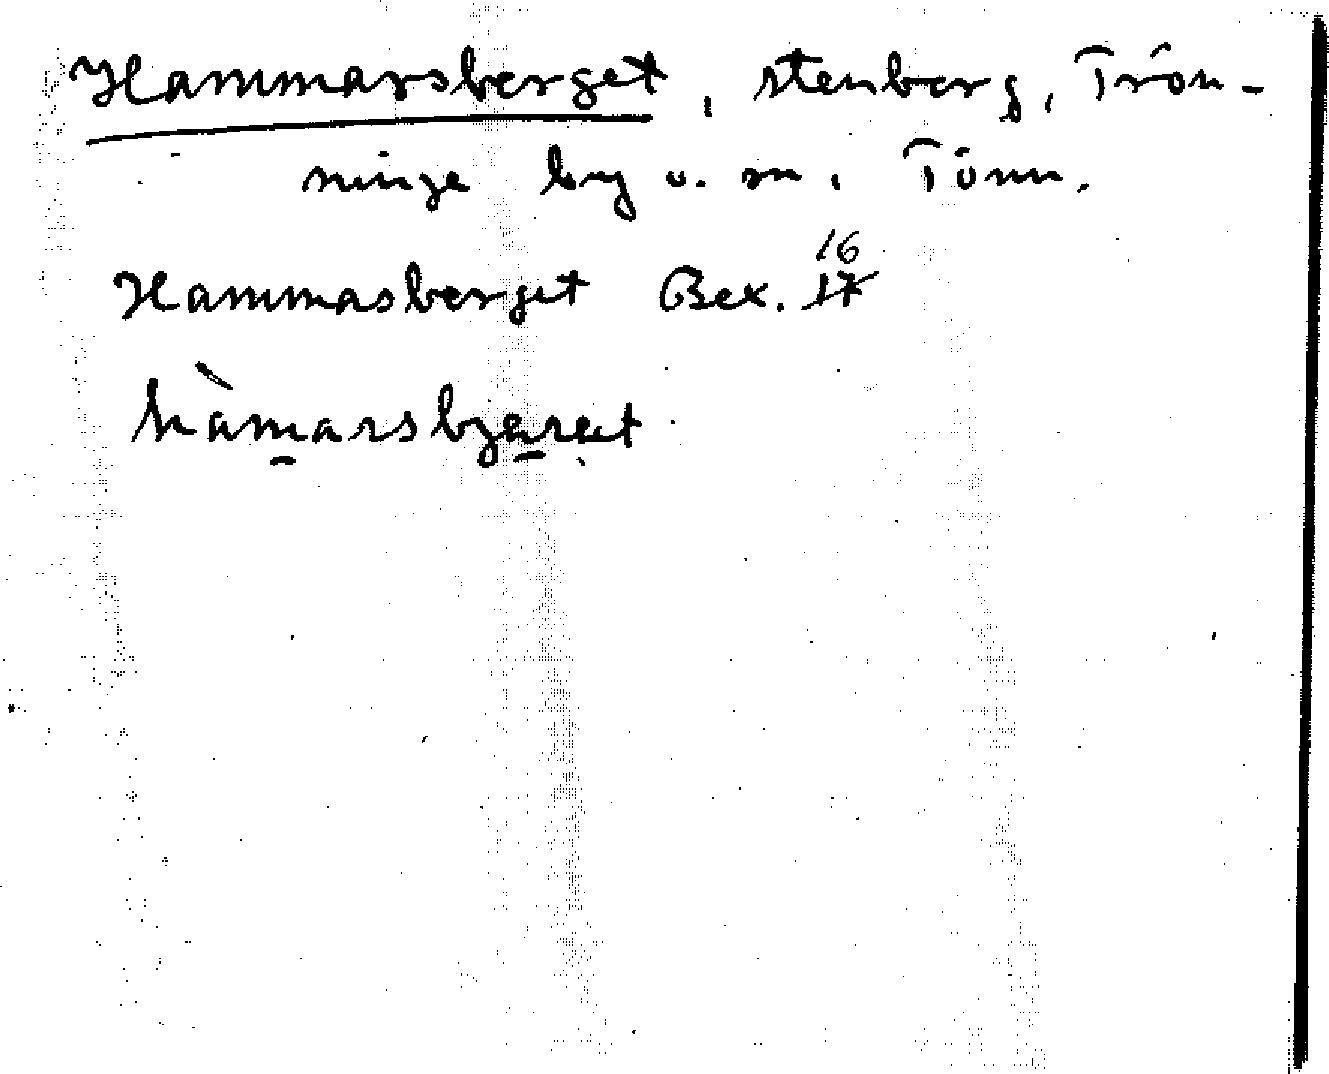 Hammarsberget, stenberg, Trön-
ninge by o. sn, Tönn.
Hammasberget Bex. 16 17
hàmarsbjarat